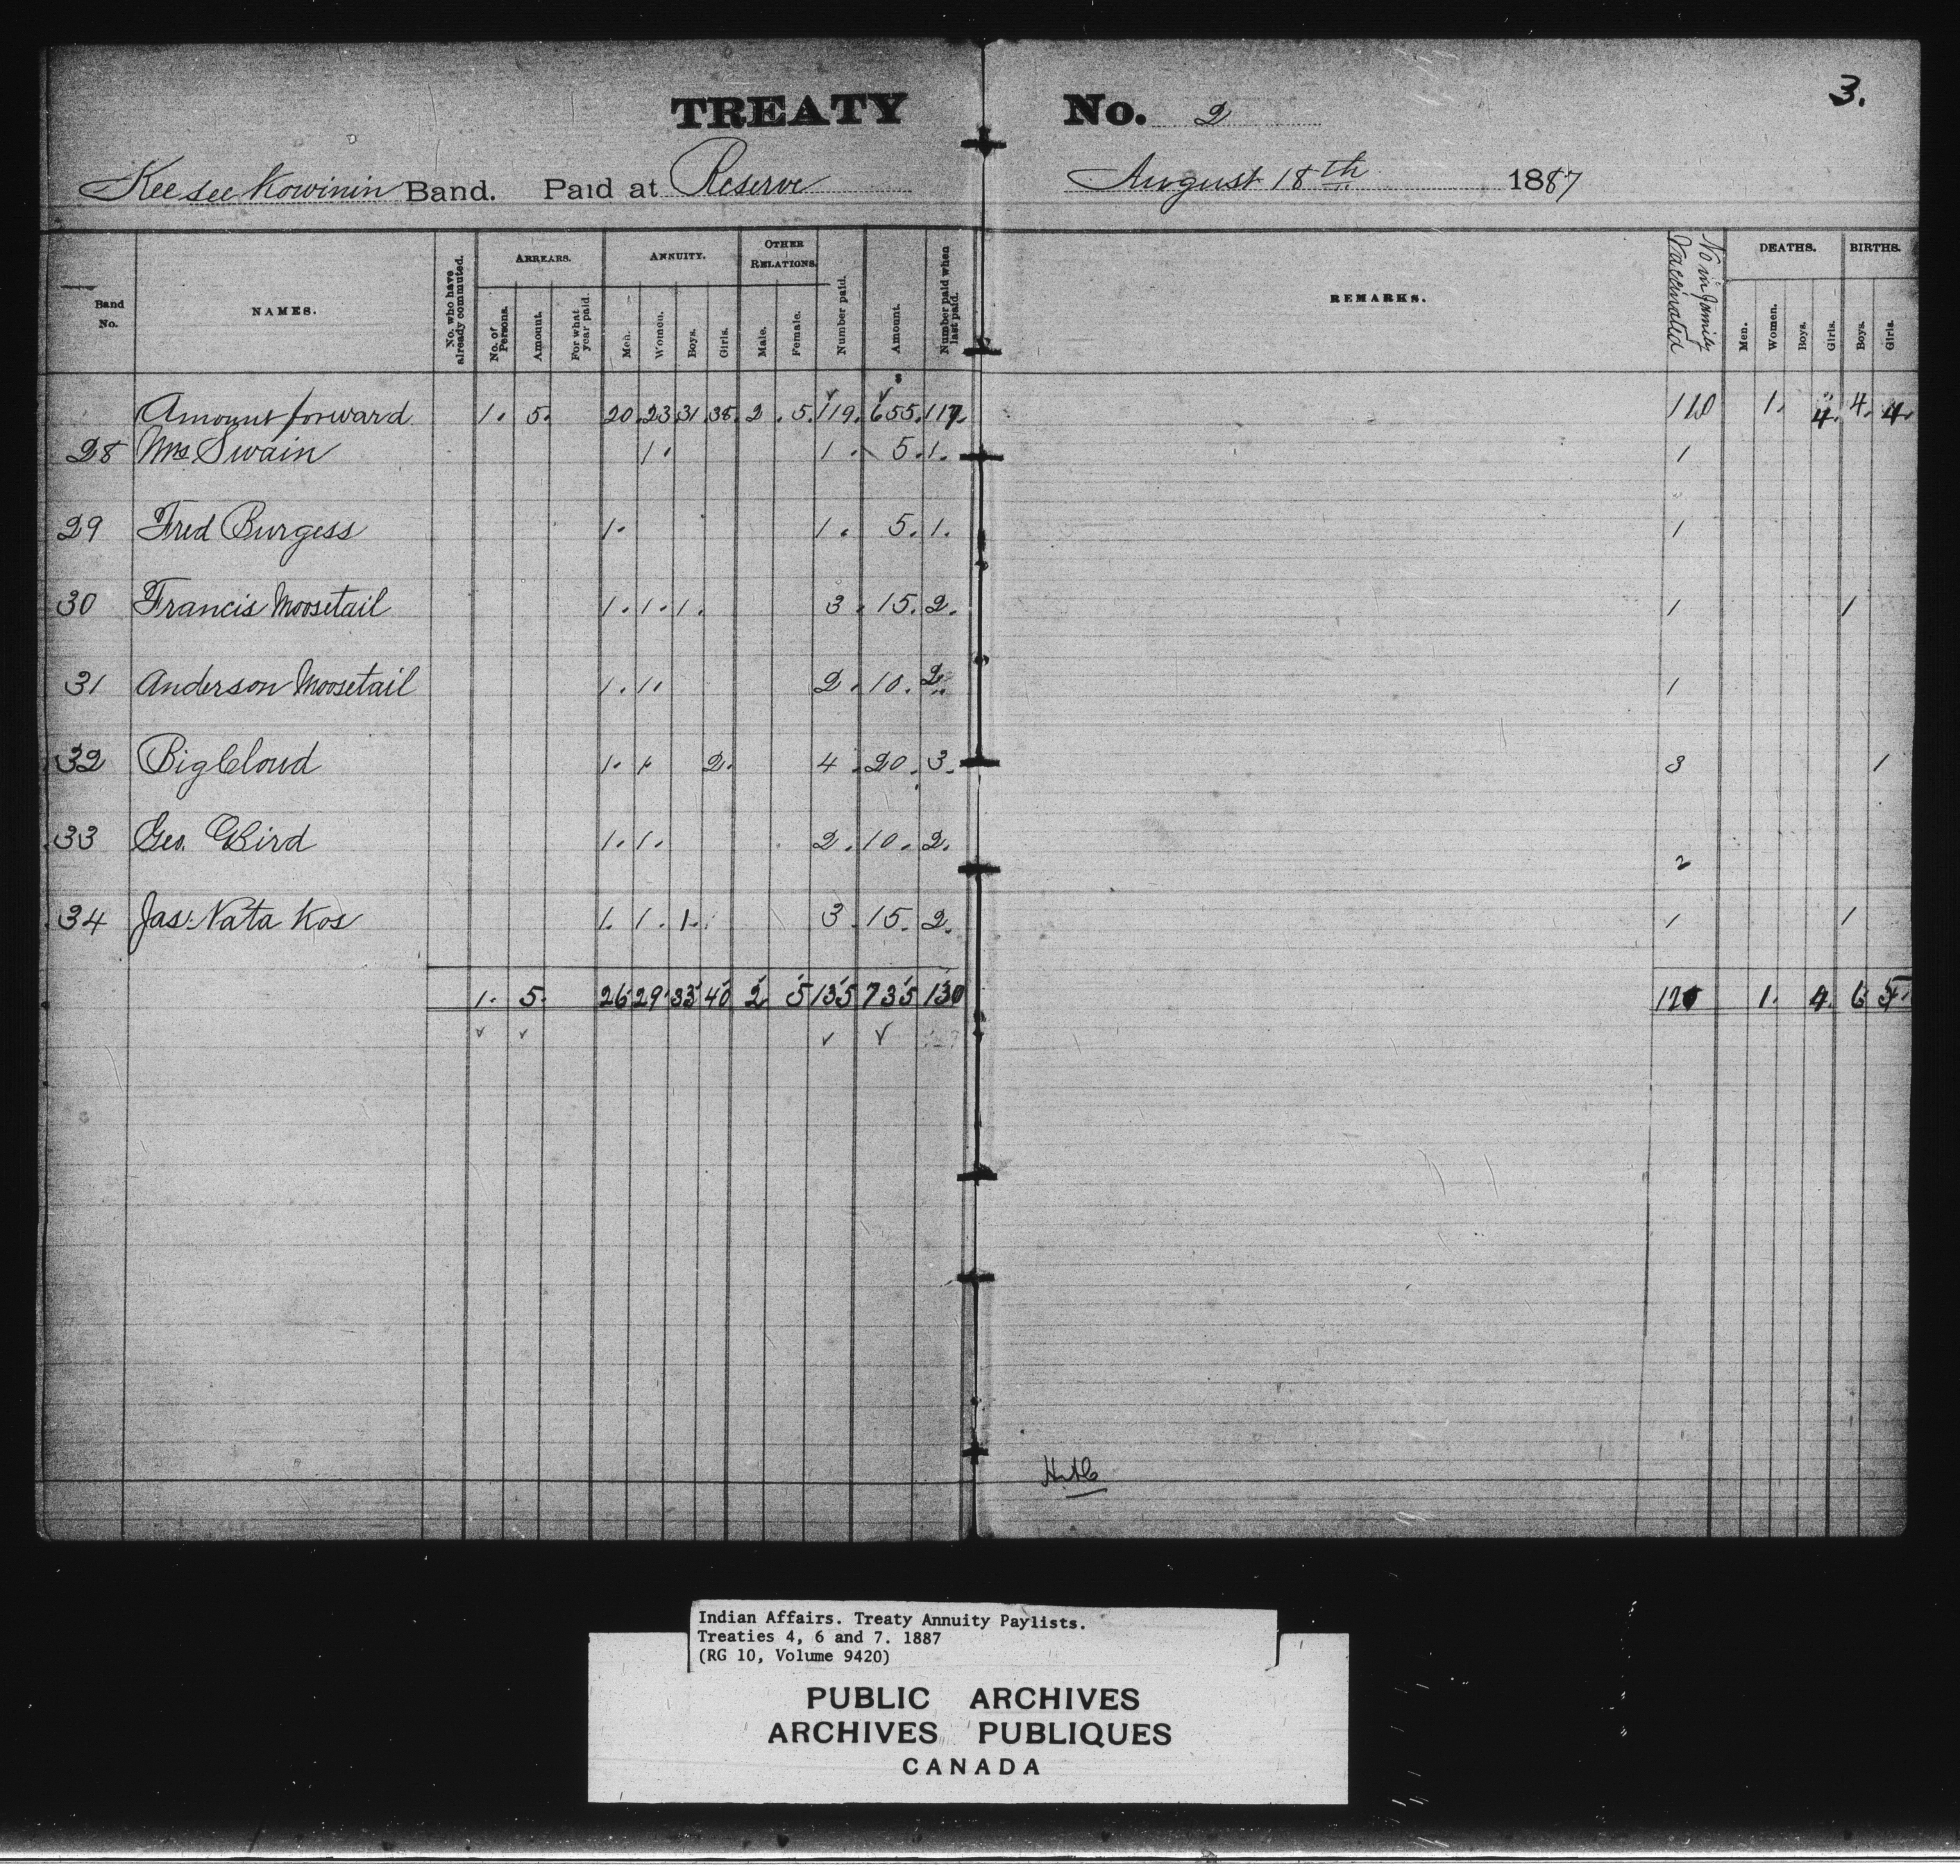 3.
TREATY No. 2
Keeseekowinin Band. Paid at Reserve August 18th 1887
Band No. NAMES. No. who have already commuted. ARREARS. No. of Persons. Amount. For what year paid. ANNUITY. Men. Women. Boys. Girls. OTHER RELATIONS. Male. Female. Number paid. Amount. Number paid when last paid. REMARKS. No in family Vaccinated DEATHS. Men. Women. Boys. Girls. BIRTHS. Boys. Girls.
$
Amount forward 1. 5. 20. 23 31 38. 2. 5. 119. 655. 117. 110 1. 4. 4. 4.
28 Mrs Swain 1. 1. 5. 1. 1
29 Fred Burgess 1. 1. 5. 1. 1
30 Francis Moosetail 1. 1. 1. 3. 15. 2. 1 1
31 Anderson Moosetail 1. 1. 2. 10. 2. 1
32 Big Cloud 1. 1 2. 4. 20. 3. 3 1
33 Geo. Bird 1. 1. 2. 10. 2. 2
34 Jas. Nata Kos 1. 1. 1. 3. 15. 2. 1 1
1. 5. 26 29 33 40 2 5 135 735 130 120 1. 4. 6 5.
Indian Affairs. Treaty Annuity Paylists.
Treaties 4, 6 and 7. 1887
(RG 10, Volume 9420)
PUBLIC ARCHIVES
ARCHIVES PUBLIQUES
CANADA